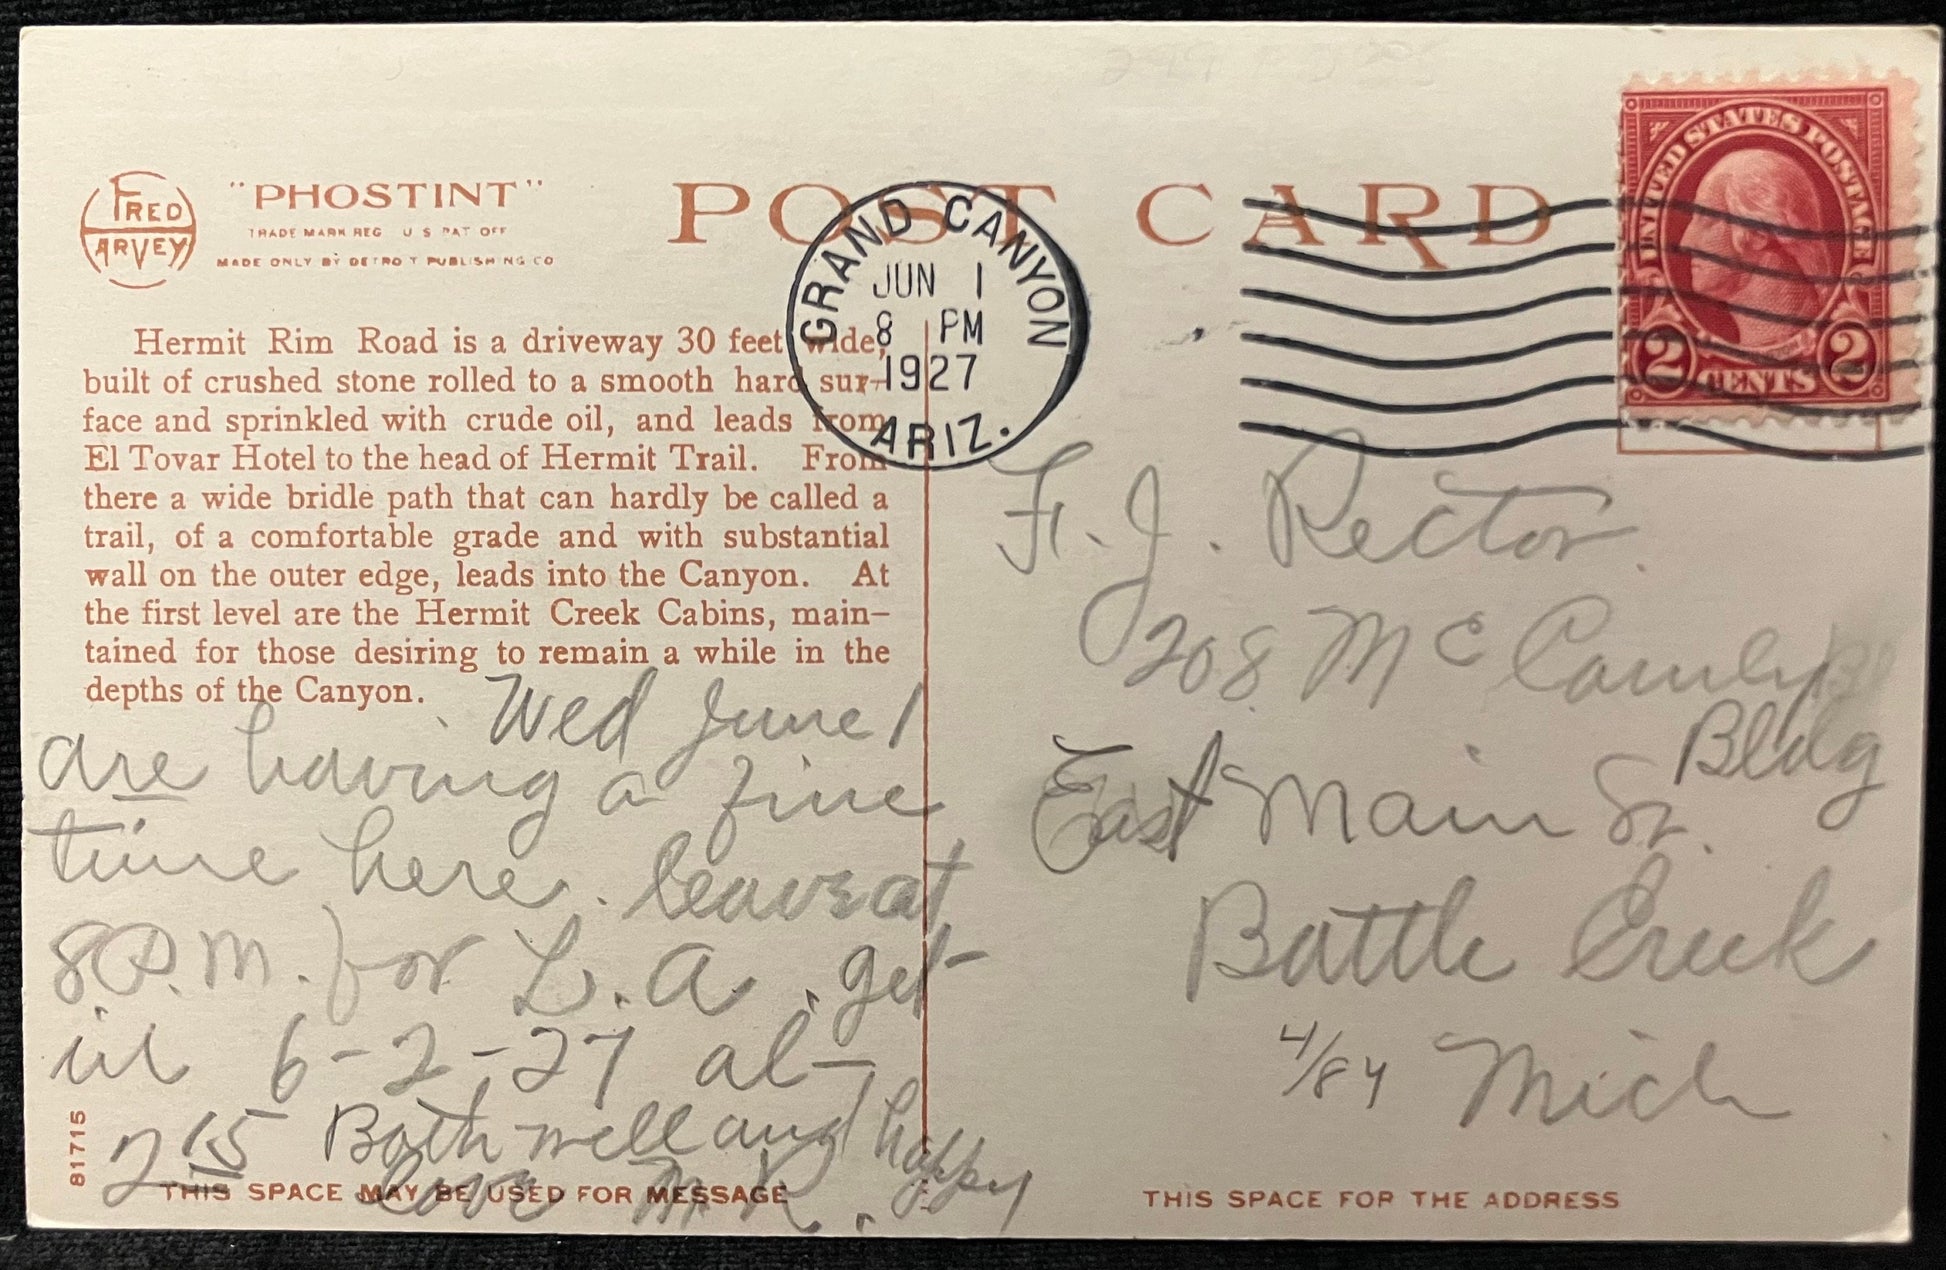 FRED
HARVEY
"PHOSTINT"
TRADE MARK REG U S PAT OFF
MADE ONLY BY DETROIT PUBLISHING CO
POST CARD
GRAND CANYON
JUN 1
8 PM
1927
ARIZ.
UNITED STATES POSTAGE
2 CENTS 2
Hermit Rim Road is a driveway 30 feet wide,
built of crushed stone rolled to a smooth hard sur-
face and sprinkled with crude oil, and leads from
El Tovar Hotel to the head of Hermit Trail. From
there a wide bridle path that can hardly be called a
trail, of a comfortable grade and with substantial
wall on the outer edge, leads into the Canyon. At
the first level are the Hermit Creek Cabins, main-
tained for those desiring to remain a while in the
depths of the Canyon.
Wed June 1
are having a fine
time here. leave at
8 P.M. for L.A. get
in 6-2-27 at
2 15 Both well and happy
love M. R.
81715
THIS SPACE MAY BE USED FOR MESSAGE
F. J. Rector.
208 Mc Camly
Bldg
East Main St.
Battle Creek
4/84 Mich
THIS SPACE FOR THE ADDRESS